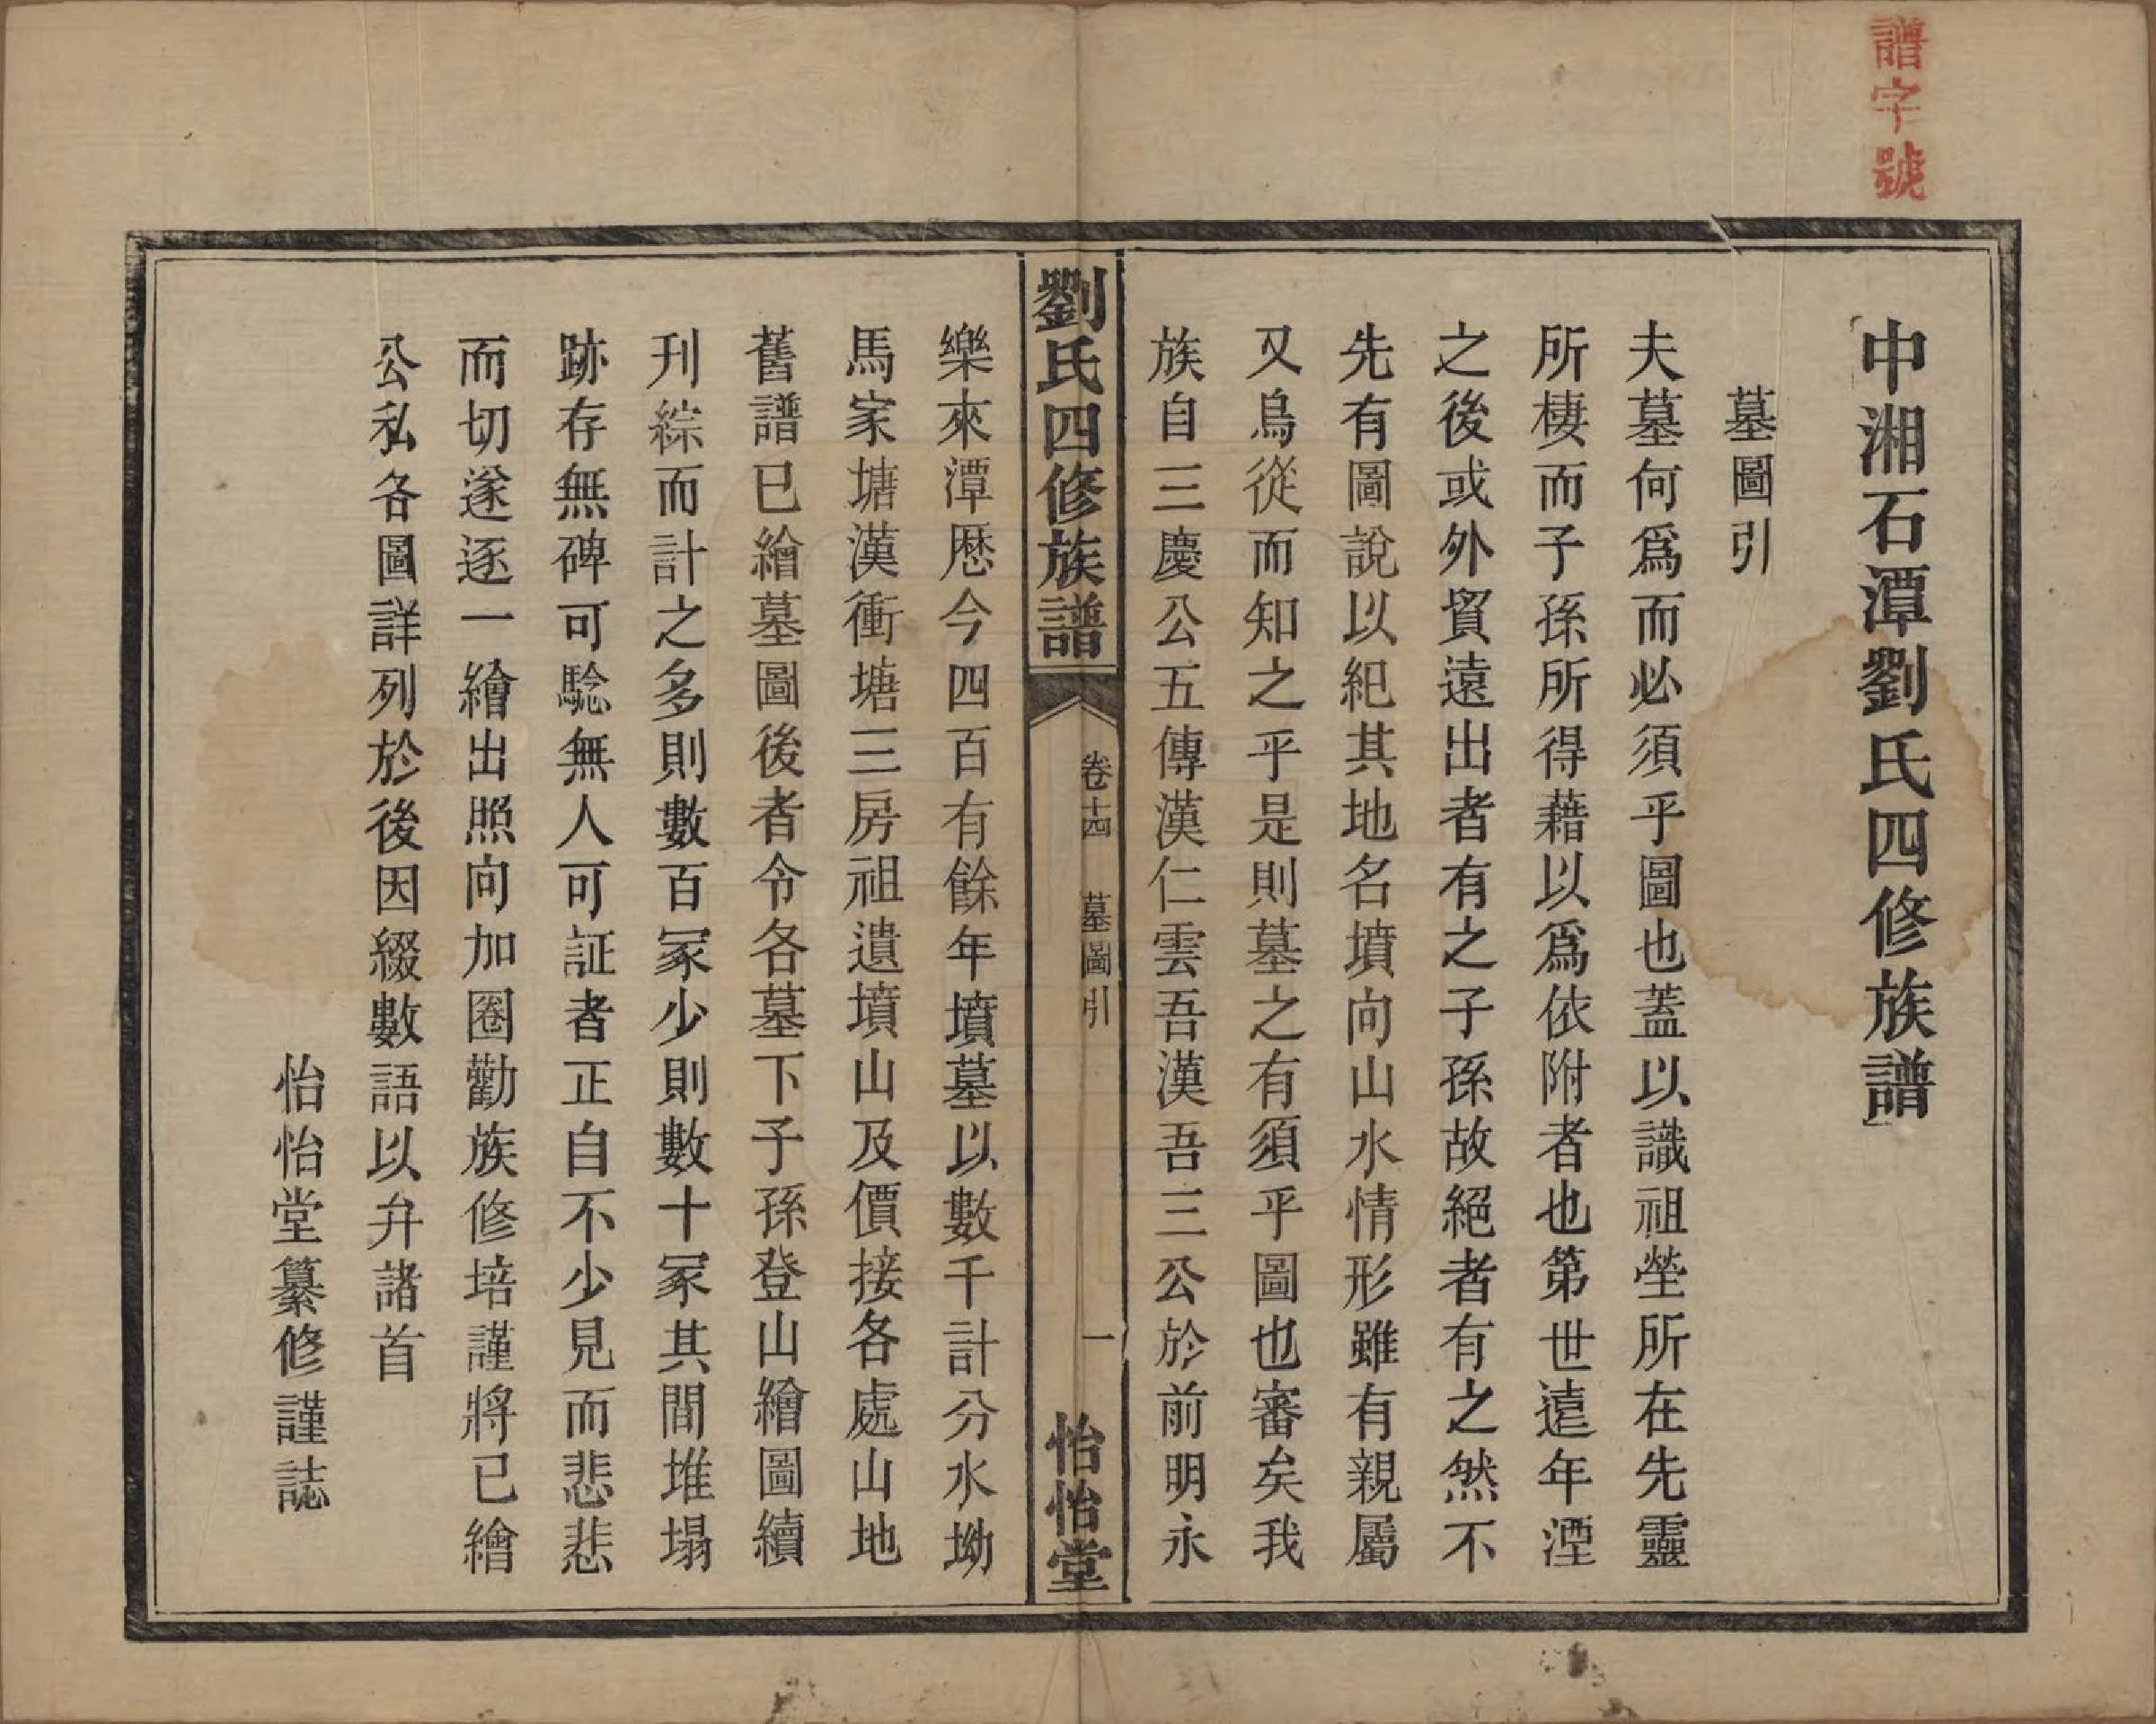 譜字號
中湘石潭劉氏四修族譜
墓圖引
夫墓何爲而必須乎圖也蓋以識祖塋所在先靈
所棲而子孫所得藉以爲依附者也第世遠年湮
之後或外貿遠出者有之子孫故絕者有之然不
先有圖說以紀其地名墳向山水情形雖有親屬
又烏從而知之乎是則墓之有須乎圖也審矣我
族自三慶公五傳漢仁雲吾漢吾三公於前明永
劉氏四修族譜
卷十四 墓圖引
一
怡怡堂
樂來潭歷今四百有餘年墳墓以數千計分水坳
馬家塘漢衝塘三房祖遺墳山及價接各處山地
舊譜已繪墓圖後者令各墓下子孫登山繪圖續
刋綜而計之多則數百冢少則數十冢其間堆塌
跡存無碑可騐無人可証者正自不少見而悲悲
而切遂逐一繪出照向加圈勸族修培謹將已繪
公私各圖詳列於後因綴數語以弁諸首
怡怡堂纂修謹誌